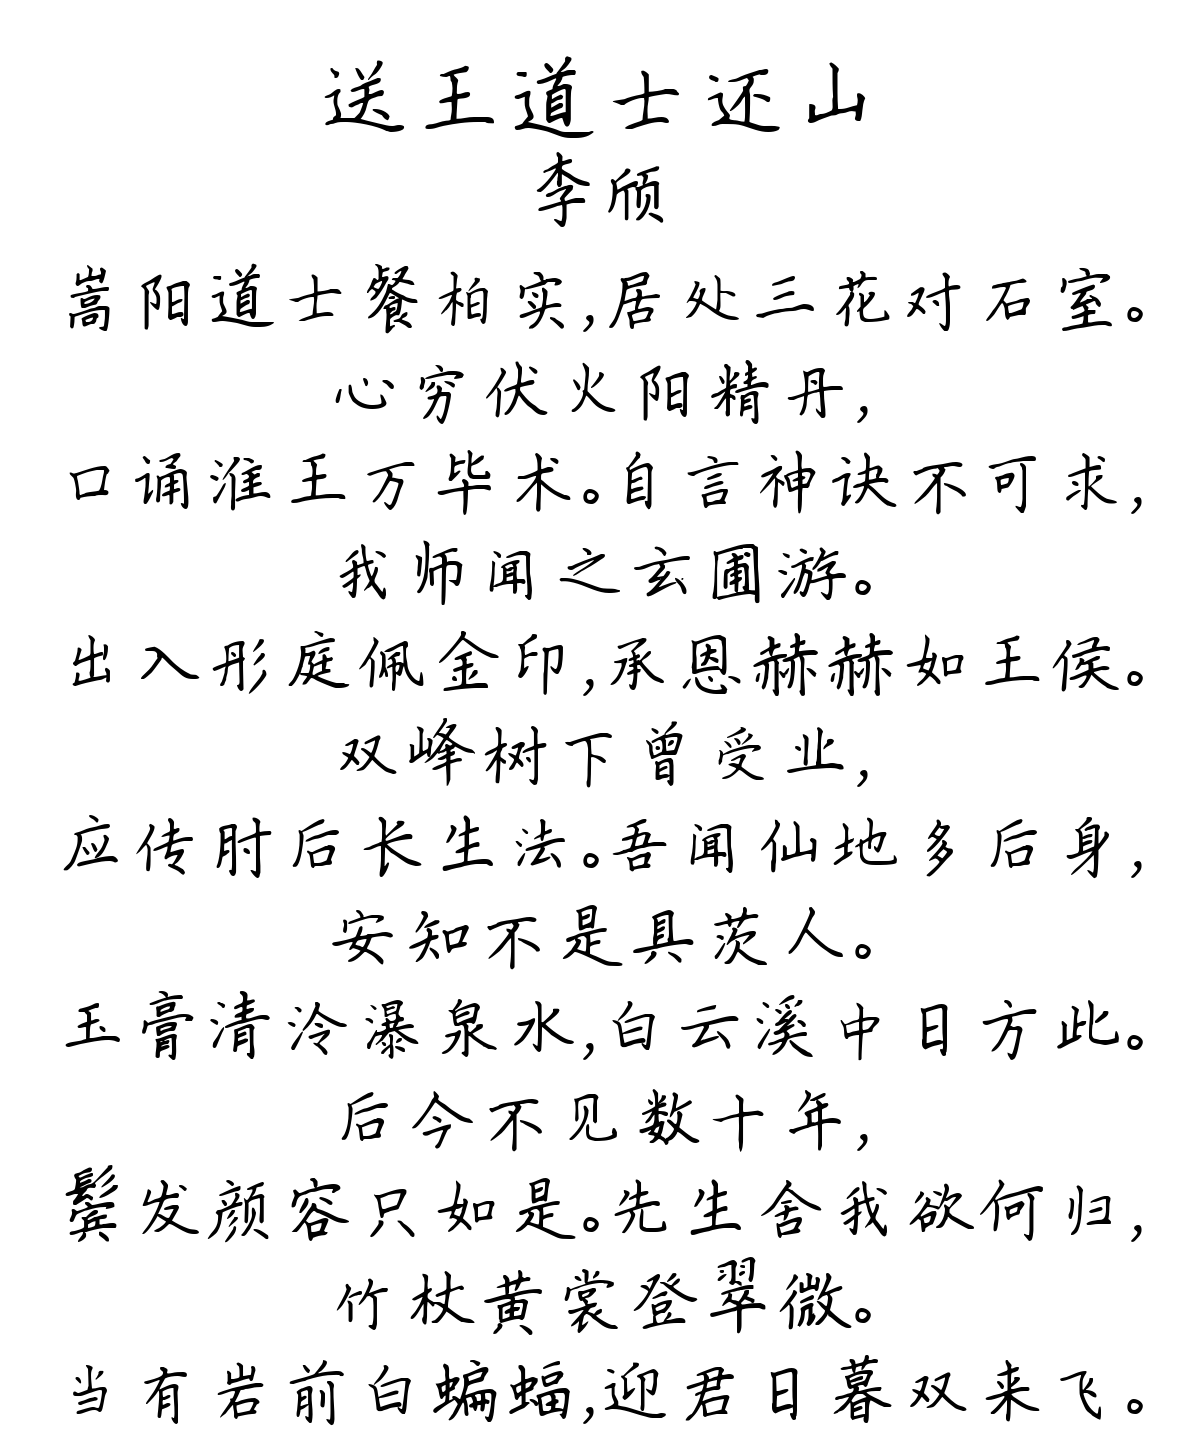 送王道士还山
李颀
嵩阳道士餐柏实,居处三花对石室。
心穷伏火阳精丹,
口诵淮王万毕术。自言神诀不可求,
我师闻之玄圃游。
出入彤庭佩金印,承恩赫赫如王侯。
双峰树下曾受业,
应传肘后长生法。吾闻仙地多后身,
安知不是具茨人。
玉膏清泠瀑泉水,白云溪中日方此。
后今不见数十年,
鬓发颜容只如是。先生舍我欲何归,
竹杖黄裳登翠微。
当有岩前白蝙蝠,迎君日暮双来飞。